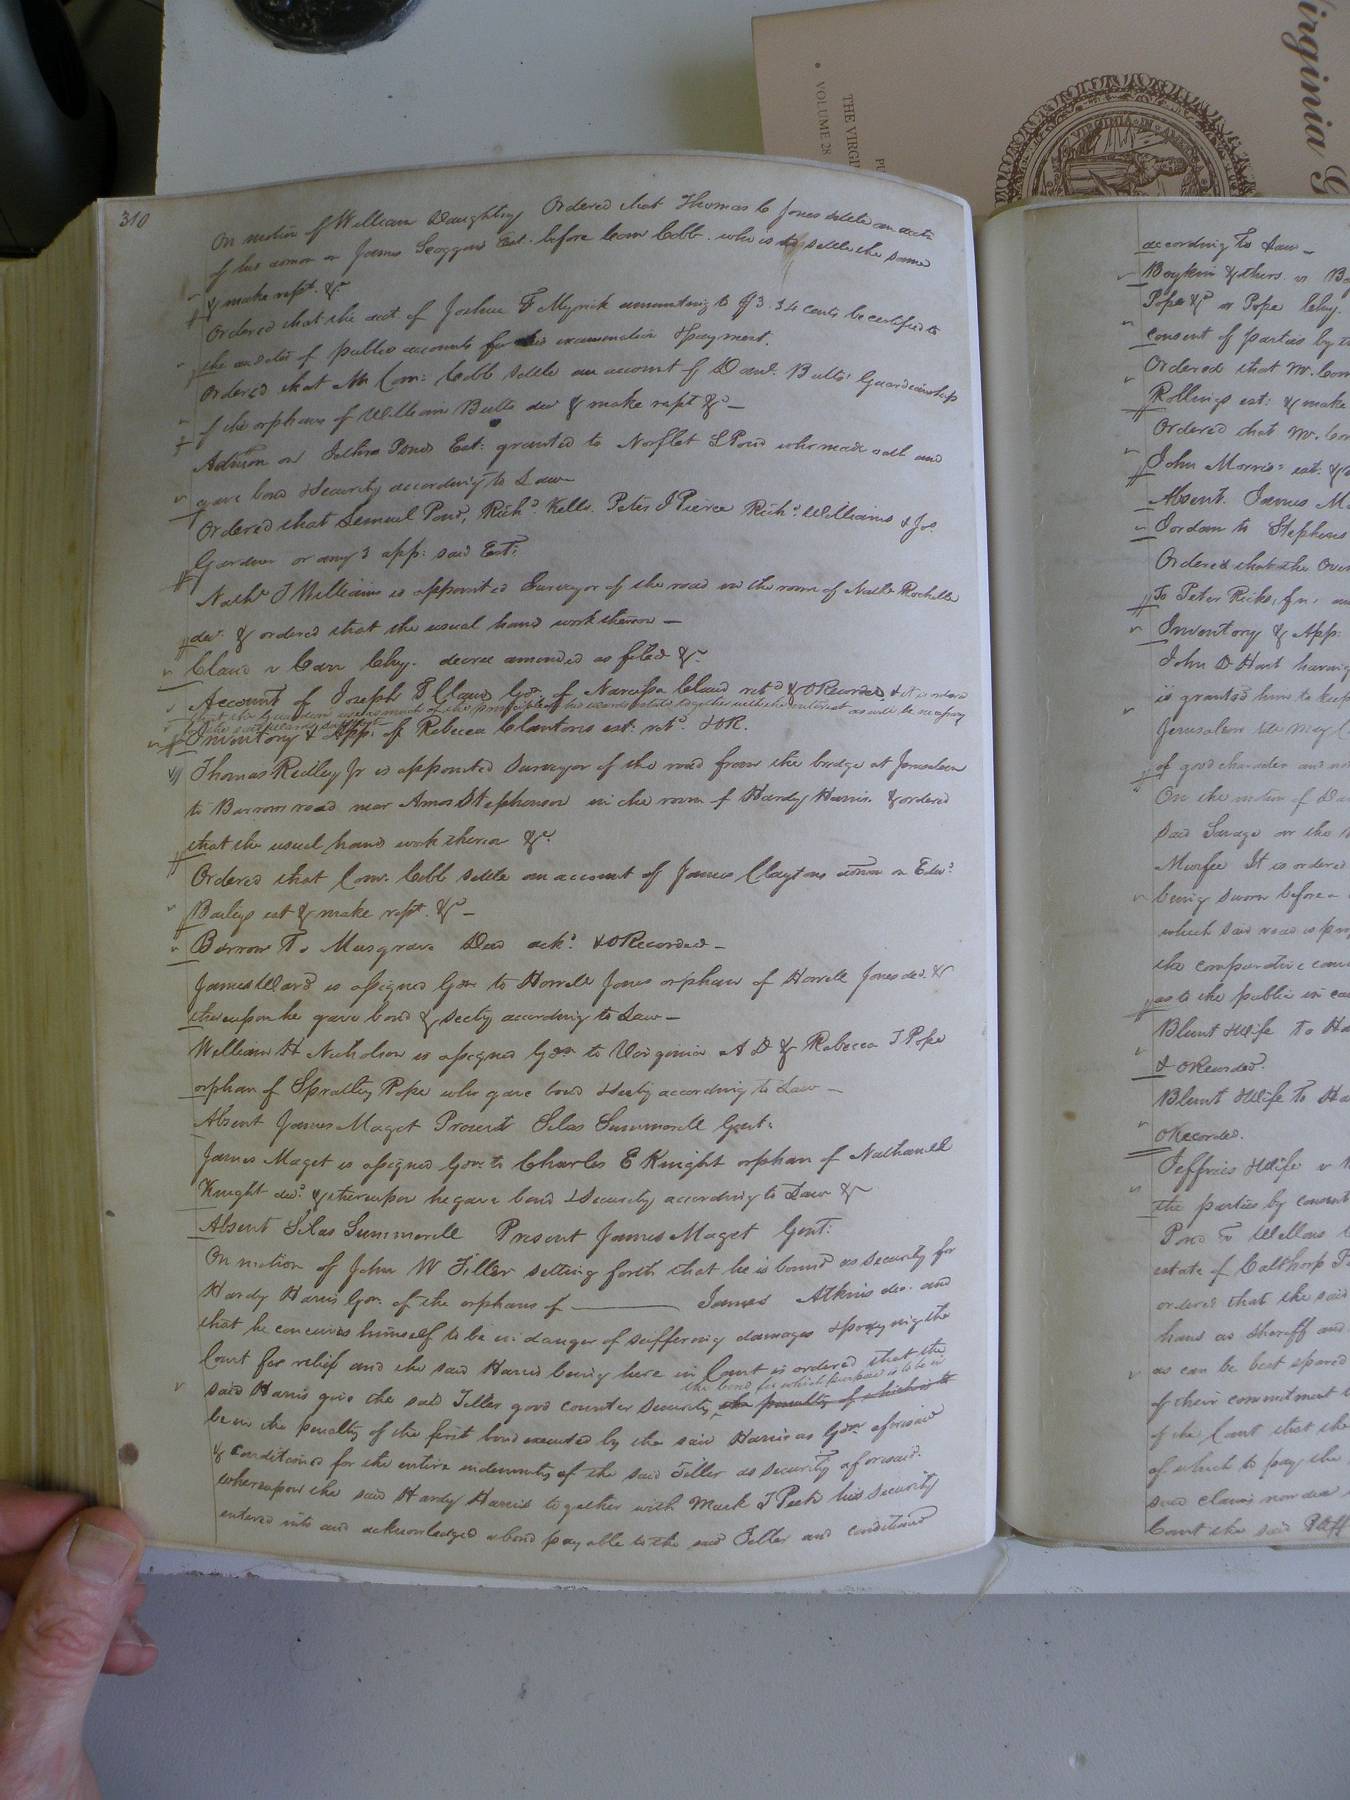 310
On motion of William Daughtry Ordered that Thomas C Jones settle an acct
of his admon on James Scoggins Est. before Lem Cobb. who is to settle the same
& make rept. &c
Ordered that the acct. of Joshua F Myrick amounting to $3.34 cents be certified to
the auditor of public accounts for his examination & payment.
Ordered that Mr Lem: Cobb settle an account of Danl. Butts' Guardianship
of the orphans of William Butts decd & make rept &c
Admon on Jethro Ponds Est: granted to Norflet S Pond who made oath and
gave bond & Security according to Law
Ordered that Lemuel Pond, Richd. Kello. Peter J Pierce Richd. Williams & Jos.
Gardner or any 3 app: said Est:
Nathl J Williams is appointed Surveyor of the road in the room of Nathl Rochelle
decd. & ordered that the usual hand work thereon
Claud v Carr Chy. decree amended as filed &c
Account of Joseph Claud Gdn. of Narcissa Claud retd & ORecorded &
that the Guardian use as much of the principle of his wards estate together with the interest as will be necessary
for the said wards support
Inventory & App: of Rebecca Clantons est: retd. & OR.
Thomas Ridley Jr is appointed Surveyor of the road from the bridge at Jerusalem
to Barrow road near Amos Stephenson in the room of Hardy Harris. & ordered
that the usual hand work thereon &c
Ordered that Lem: Cobb settle an account of James Claytons admon on Edwd.
Baileys est & make rept. &c
Barrow To Musgrave Deed ackd. & ORecorded
James Ward is assigned Gdn to Howell Jones orphan of Howell Jones decd. &
thereupon he gave bond & secty according to Law
William H Nicholson is assigned Gdn to Virginia A D & Rebecca T Pope
orphan of Spratley Pope who gave bond & secty according to Law
Absent James Maget Present Silas Summerell Gent:
James Maget is assigned Gdn to Charles E Knight orphan of Nathaniel
Knight decd. & thereupon he gave bond & Security according to Law &c
Absent Silas Summerell Present James Maget Gent:
On motion of John W Tiller setting forth that he is bound as security for
Hardy Harris Gdn. of the orphans of James Atkins decd. and
that he conceives himself to be in danger of suffering damages & praying the
Court for relief and the said Harris being here in Court is ordered that the
the bond for which purpose is to be in
said Harris give the said Tiller good counter security, the penalty of which is to
be in the penalty of the first bond executed by the said Harris as Gdn aforesaid
& conditioned for the entire indemnity of the said Tiller as security aforesaid.
whereupon the said Hardy Harris together with Mark T Peete his security
entered into and acknowledged a bond payable to the said Tiller and conditioned
according to Law
Boykin & others. v
Pope &c v Pope Chy.
consent of parties by
Ordered that Mr.
Rollings est: & make
Ordered that Mr.
John Morris' est: &
Absent. James
Jordan to Stephens
Ordered that the
To Peter Ricks, Jr.
Inventory & App:
John D Hart having
is granted him to keep
Jerusalem
of good character and
On the motion of
said Savage or the
Murfee It is ordered
being sworn before
which said road is
the comparative
as to the public in
Blunt & Wife To
& ORecorded.
Blunt & Wife To
ORecorded.
Jeffries & Wife v
the parties by consent
Pond v Wellons
estate of Calthorp
ordered that the said
hand as Sheriff and
as can be best spared
of their commitment
of the Court that the
of which to pay the
said claims now due
Court the said Pltff
THE VIRGI
VOLUME 28
VIRGINIA IN
Virginia G